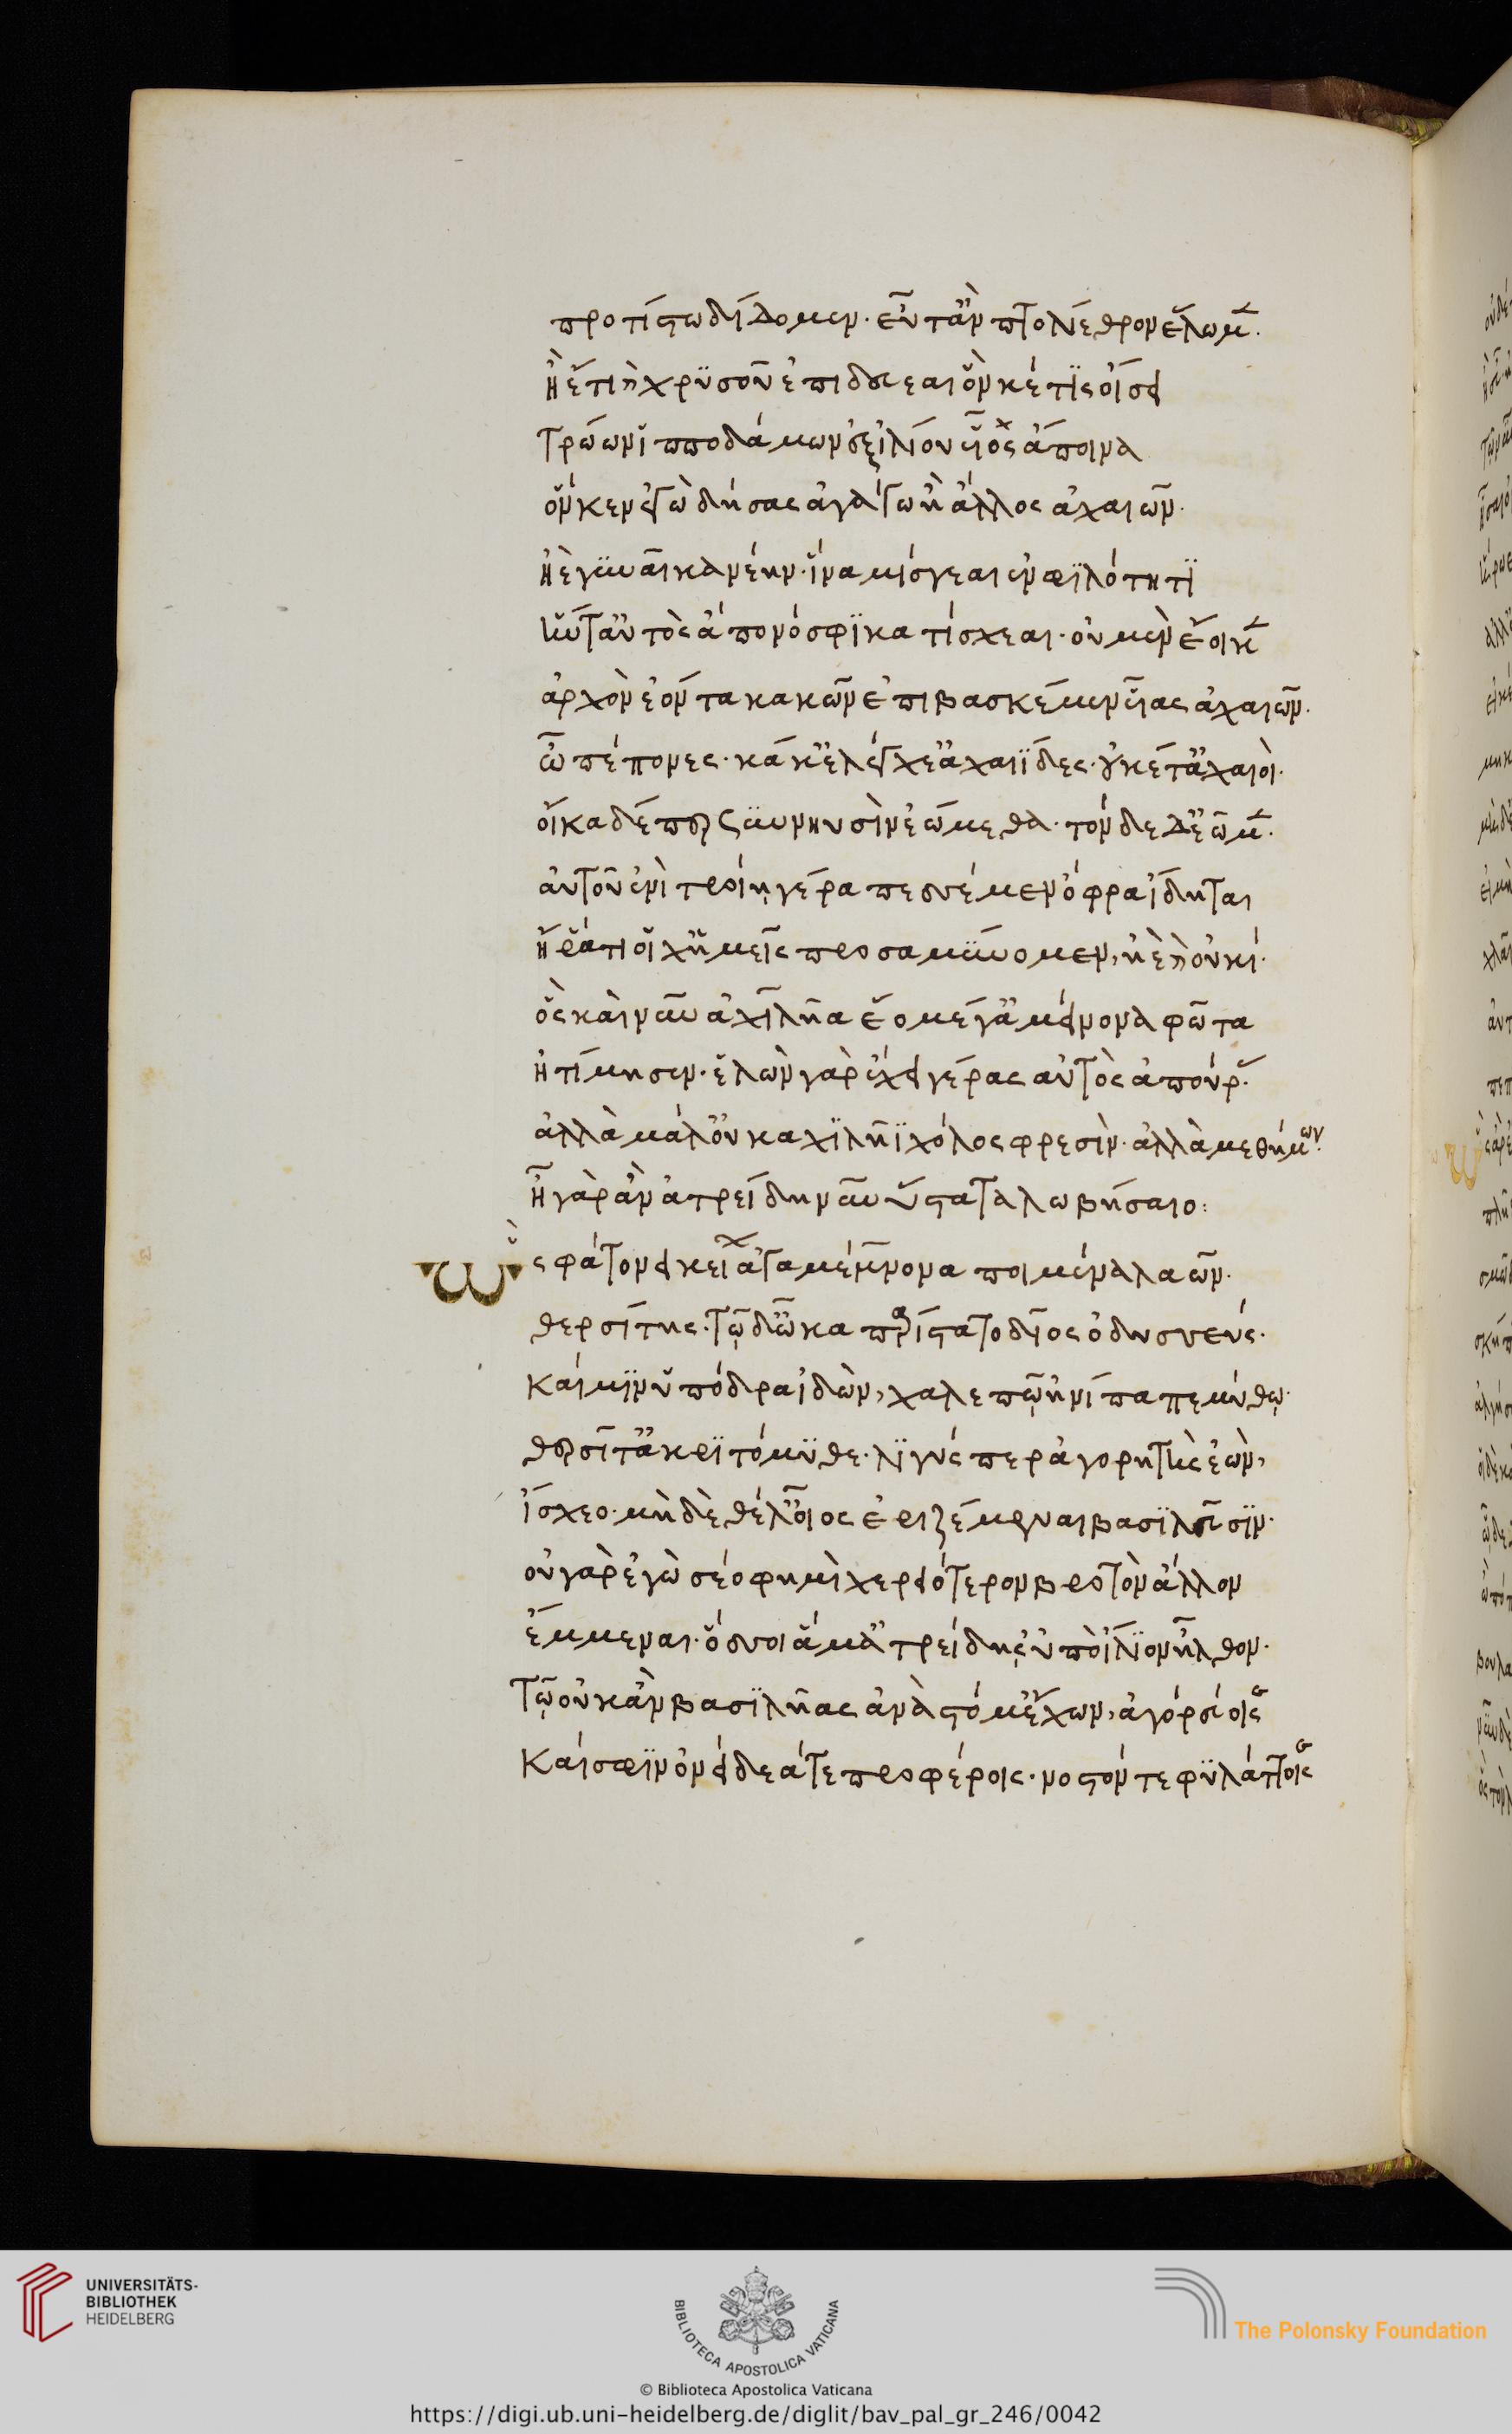 πρωτίστω δίδομεν· εὖτ᾽ ἂν πτολίεθρον ἕλωμεν·
ἢ ἔτι καὶ χρυσοῦ ἐπιδεύεαι ὅν κέ τις οἴσει
τρώων ἱπποδάμων ἐξ ἰλίου υἷος ἄποινα
ὅν κεν ἐγὼ δήσας ἀγάγω ἢ ἄλλος ἀχαιῶν·
ἠὲ γυναῖκα νέην· ἵνα μίσγεαι ἐν φιλότητι
ἥν τ᾽ αὐτὸς ἀπονόσφι κατίσχεαι· οὐ μὲν ἔοικεν
ἀρχὸν ἐόντα κακῶν ἐπιβασκέμεν υἷας ἀχαιῶν·
ὦ πέπονες· κάκ᾽ ἐλέγχε᾽ ἀχαιίδες· οὐκέτ᾽ ἀχαιοί·
οἴκαδέ περ σὺν νηυσὶ νεώμεθα· τόνδε δ᾽ ἐῶμεν·
αὐτοῦ ἐνὶ τροίη γέρα πεσσέμεν ὄφρα ἴδηται
ἤ ῥά τί οἱ χ᾽ ἡμεῖς προσαμύνομεν, ἠὲ καὶ οὐκί·
ὃς καὶ νῦν ἀχιλῆα ἕο μέγ᾽ ἀμείνονα φῶτα
ἠτίμησεν· ἑλὼν γὰρ ἔχει γέρας αὐτὸς ἀπούρας·
ἀλλὰ μάλ᾽ οὐκ ἀχιλῆϊ χόλος φρεσίν· ἀλλὰ μεθήμων·
ἦ γὰρ ἂν ἀτρείδη νῦν ὕστατα λωβήσαιο:
ὣς φάτο νεικείων ἀγαμέμνονα ποιμένα λαῶν·
θερσίτης· τῷ δ᾽ ὦκα παρίστατο δῖος ὀδυσσεύς·
καί μιν ὑπόδρα ἰδὼν, χαλεπῷ ἠνίπαπε μύθῳ·
θερσῖτ᾽ ἀκριτόμυθε· λιγύς περ ἀγορητὴς ἐὼν,
ἴσχεο· μὴ δὲ θέλ᾽ οἶος ἐριζέμεναι βασιλεῦσιν·
οὐ γὰρ ἐγὼ σέο φημὶ χερειότερον βροτὸν ἄλλον
ἔμμεναι· ὅσσοι ἅμ᾽ ἀτρείδῃς ὑπὸ ἴλιον ἦλθον·
τῷ οὐκ ἂν βασιλῆας ἀνὰ στόμ᾽ ἔχων, ἀγορεύοις
καί σφιν ὀνείδεά τε προφέροις· νόστόν τε φυλάττοις
UNIVERSITÄTS-
BIBLIOTHEK
HEIDELBERG
BIBLIOTECA APOSTOLICA VATICANA
The Polonsky Foundation
© Biblioteca Apostolica Vaticana
https://digi.ub.uni-heidelberg.de/diglit/bav_pal_gr_246/0042